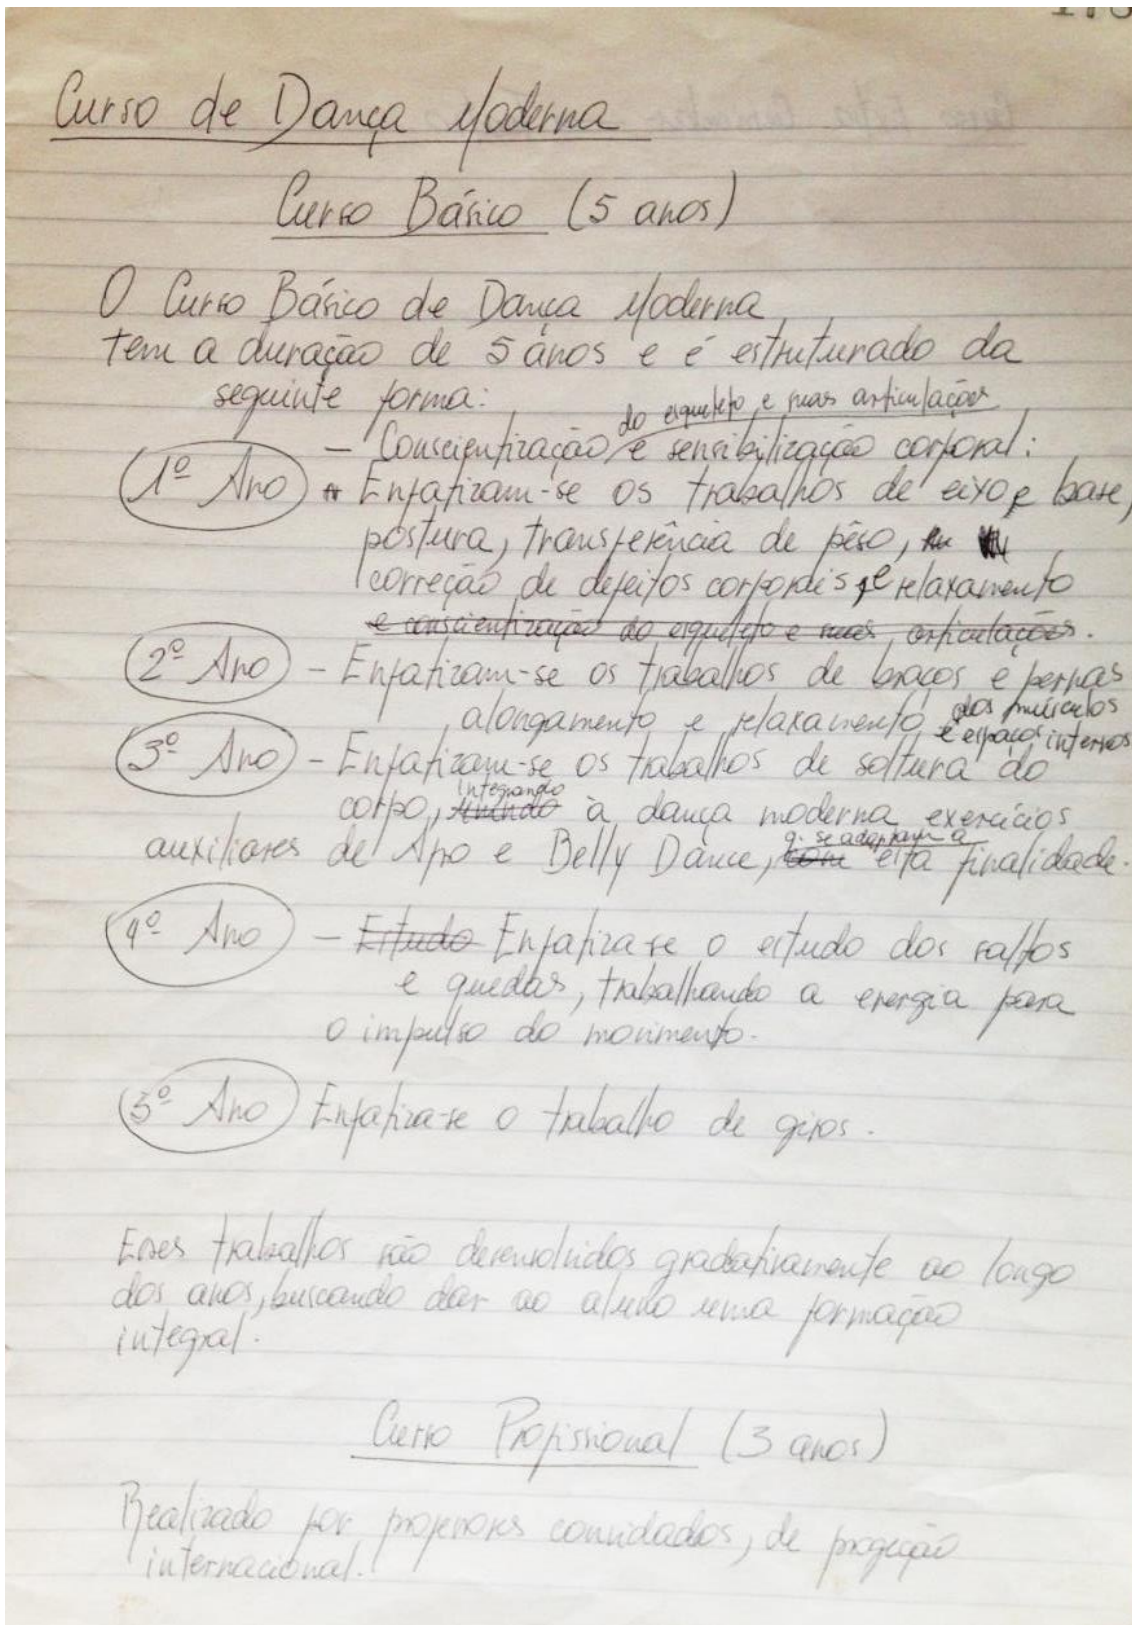 Curso de Dança Moderna
Curso Básico (5 anos)
O Curso Básico de Dança Moderna
tem a duração de 5 anos e é estruturado da
seguinte forma:
do esqueleto e suas articulações
1º Ano - Conscientização e sensibilização corporal:
Enfatizam-se os trabalhos de eixo e base,
postura, transferência de pêso,
correção de defeitos corporais e relaxamento
e conscientização do esqueleto e suas articulações.
2º Ano - Enfatizam-se os trabalhos de braços e pernas
, alongamento e relaxamento dos músculos
e espaços internos
3º Ano - Enfatizam-se os trabalhos de soltura do
integrando
corpo, unindo à dança moderna exercícios
q. se adaptam a
auxiliares de Afro e Belly Dance, com esta finalidade.
4º Ano - Estudo Enfatiza-se o estudo dos saltos
e quedas, trabalhando a energia para
o impulso do movimento.
5º Ano Enfatiza-se o trabalho de giros.
Esses trabalhos são desenvolvidos gradativamente ao longo
dos anos, buscando dar ao aluno uma formação
integral.
Curso Profissional (3 anos)
Realizado por professores convidados, de projeção
internacional.